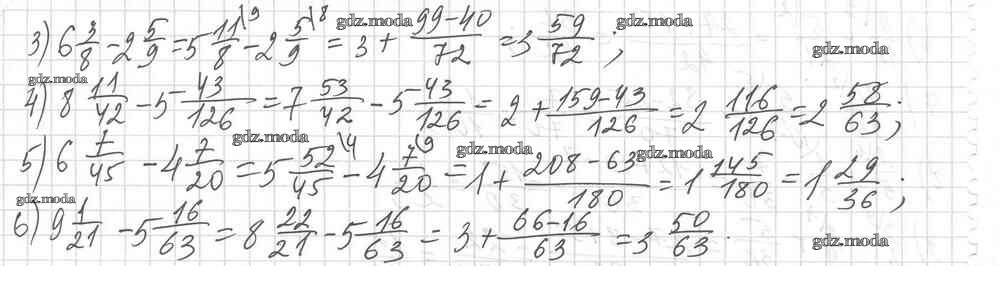 3) 6 3/8 - 2 5/9 = 5 11/8 \9 - 2 5/9 \8 = 3 + (99-40)/72 = 3 59/72 ;
gdz.moda gdz.moda gdz.moda
gdz.moda gdz.moda
4) 8 11/42 - 5 43/126 = 7 53/42 - 5 43/126 = 2 + (159-43)/126 = 2 116/126 = 2 58/63 ;
gdz.moda gdz.moda gdz.moda
5) 6 7/45 - 4 7/20 = 5 52/45 \4 - 4 7/20 \9 = 1 + (208-63)/180 = 1 145/180 = 1 29/36 ;
gdz.moda
6) 9 1/21 - 5 16/63 = 8 22/21 - 5 16/63 = 3 + (66-16)/63 = 3 50/63 .
gdz.moda